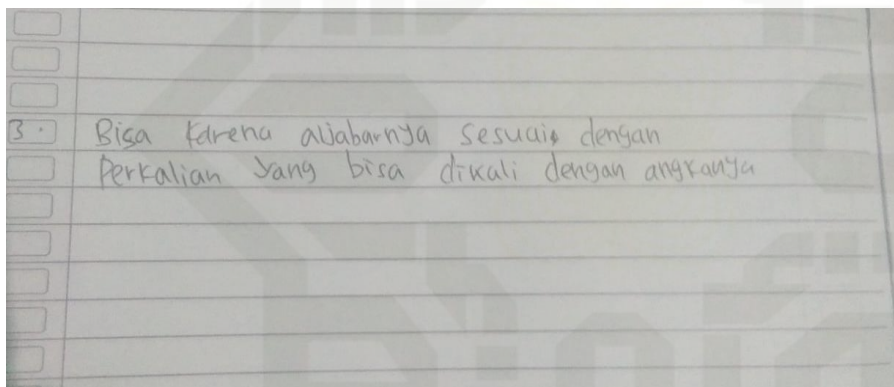 3. Bisa Karena aljabarnya sesuai dengan
Perkalian yang bisa dikali dengan angkanya